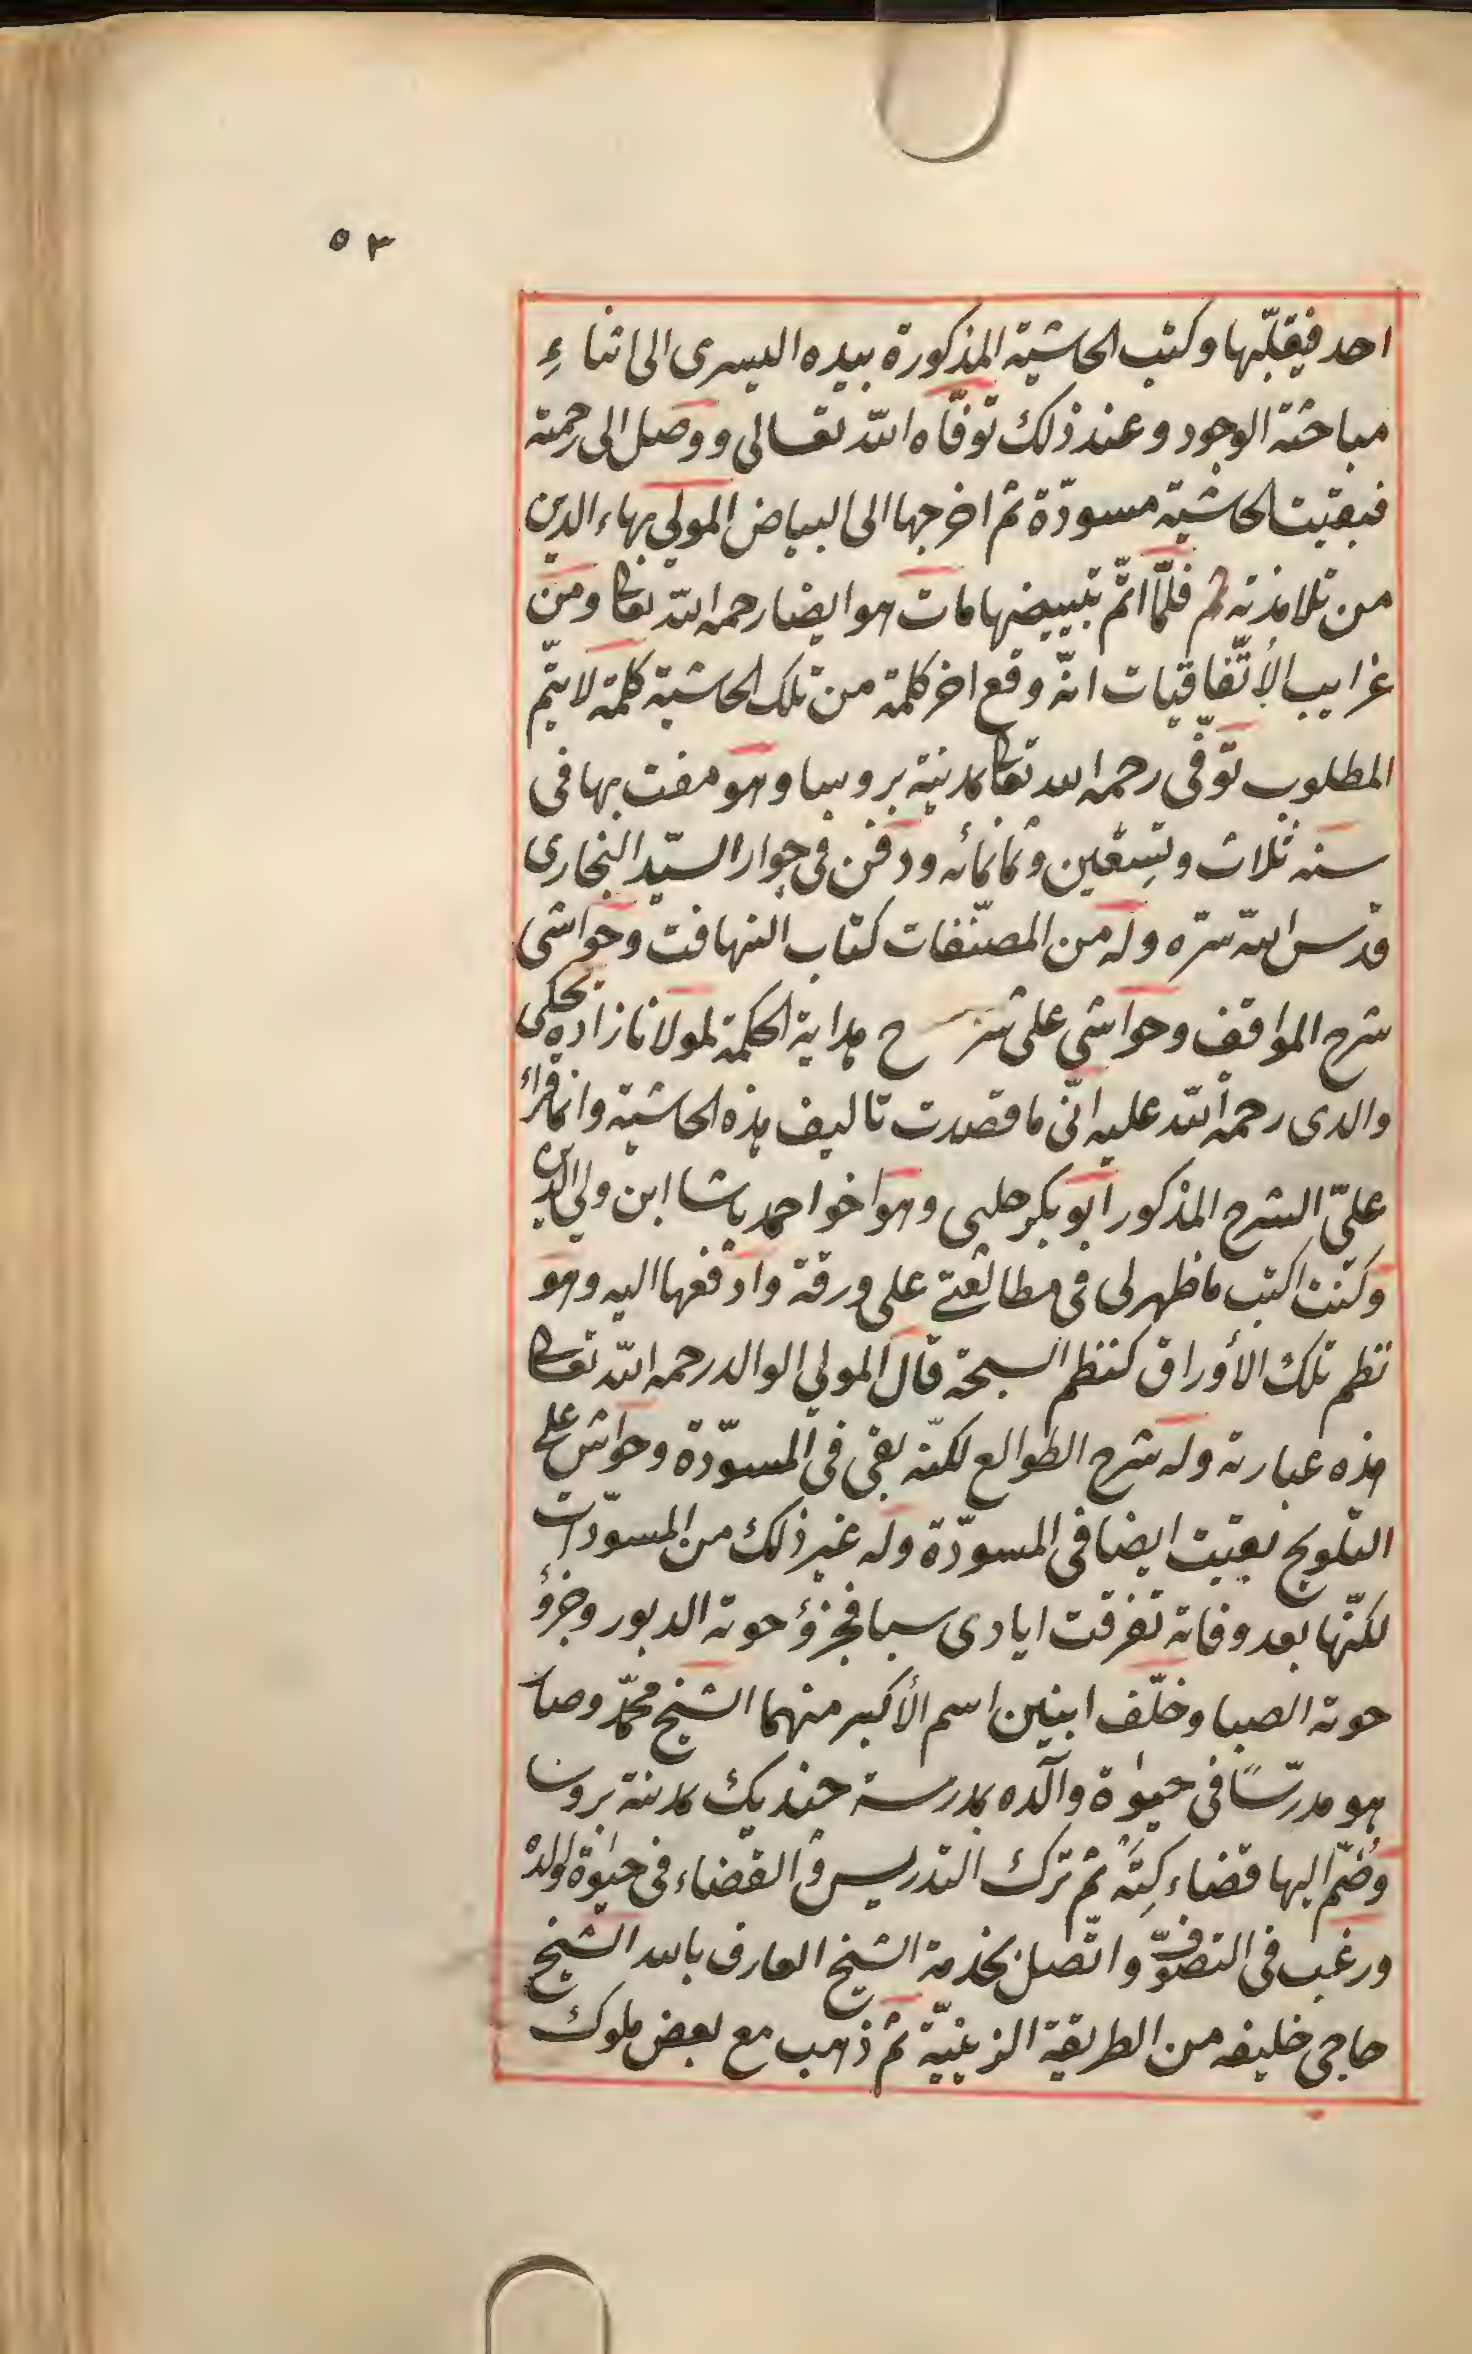 ٥٣
احد فيقلّبها وكتب الحاشية المذكورة بيده اليسرى الى اثناءِ
مباحثة الوجود وعند ذلك توفّاه الله تعالى ووصل الى رحمته
فبقيت الحاشية مسودّة ثم اخرجها الى البياض المولى بهاء الدين
من تلامذته ثم فلمّا اتمّ تبييضها مات هو ايضا رحمه الله تعا ومن
غرايب الأتّفاقيات انّه وقع اخر كلمة من تلك الحاشية كلمة لا يتمّ
المطلوب توفّى رحمه الله تعا بمدينة بروسا وهو مفت بها فى
سنه ثلاث وتسعين وثمانمائه ودفن فى جوار السيّد البخارى
قدّس الله سرّه وله من المصنّفات كتاب التهافت وحواشى
شرح المواقف وحواشى على شرح هداية الحكمة لمولانا زاده يحكى
والدى رحمة الله عليه انّى ما قصدت تاليف هذه الحاشية وانما قرأ
علىّ الشرح المذكور ابو بكر حلبى وهو اخو احمد باشا ابن ولى الدين
وكنت اكتب ما ظهر لى فى مطالعتى على ورقة وادفعها اليه وهو
نظم تلك الأوراق كنظم السبحة قال المولى الوالد رحمه الله تعا
هذه عبارته وله شرح الطوالع لكنّه بقى فى المسوّدة وحواش على
التلويح بقيت ايضا فى المسوّدة وله غير ذلك من المسوّدات
لكنّها بعد وفاته تفرقت ايادى سبا فجزؤ حوته الدبور وجزؤ
حوته الصبا وخلّف ابنين اسم الأكبر منهما الشيخ محمّد وصار
هو مدرّسًا فى حيوة والده بمدرسة جنديك بمدينة بروسا
وضمّ اليها قضاء كِتَه ثم ترك التدريس والقضاء فى حيوة والده
ورغب فى التصوّف واتّصل بخدمة الشيخ العارف بالله الشيخ
حاجى خليفه من الطريقة الزينيّة ثم ذهب مع بعض ملوك